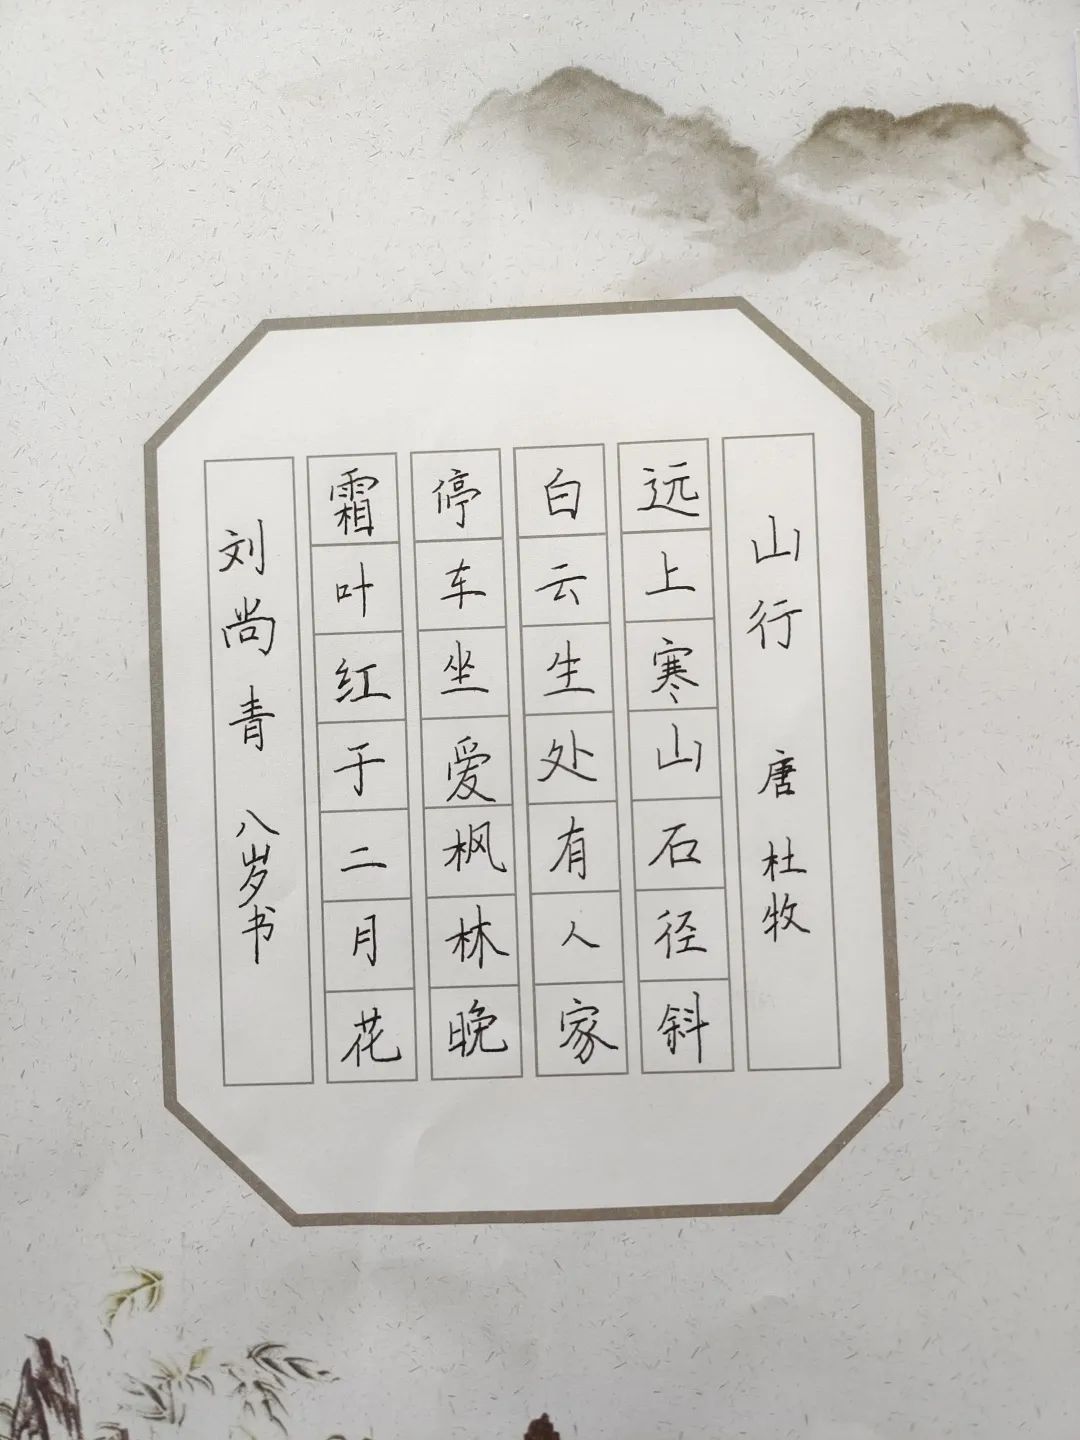 山行 唐 杜牧
远上寒山石径斜
白云生处有人家
停车坐爱枫林晚
霜叶红于二月花
刘尚青 八岁书